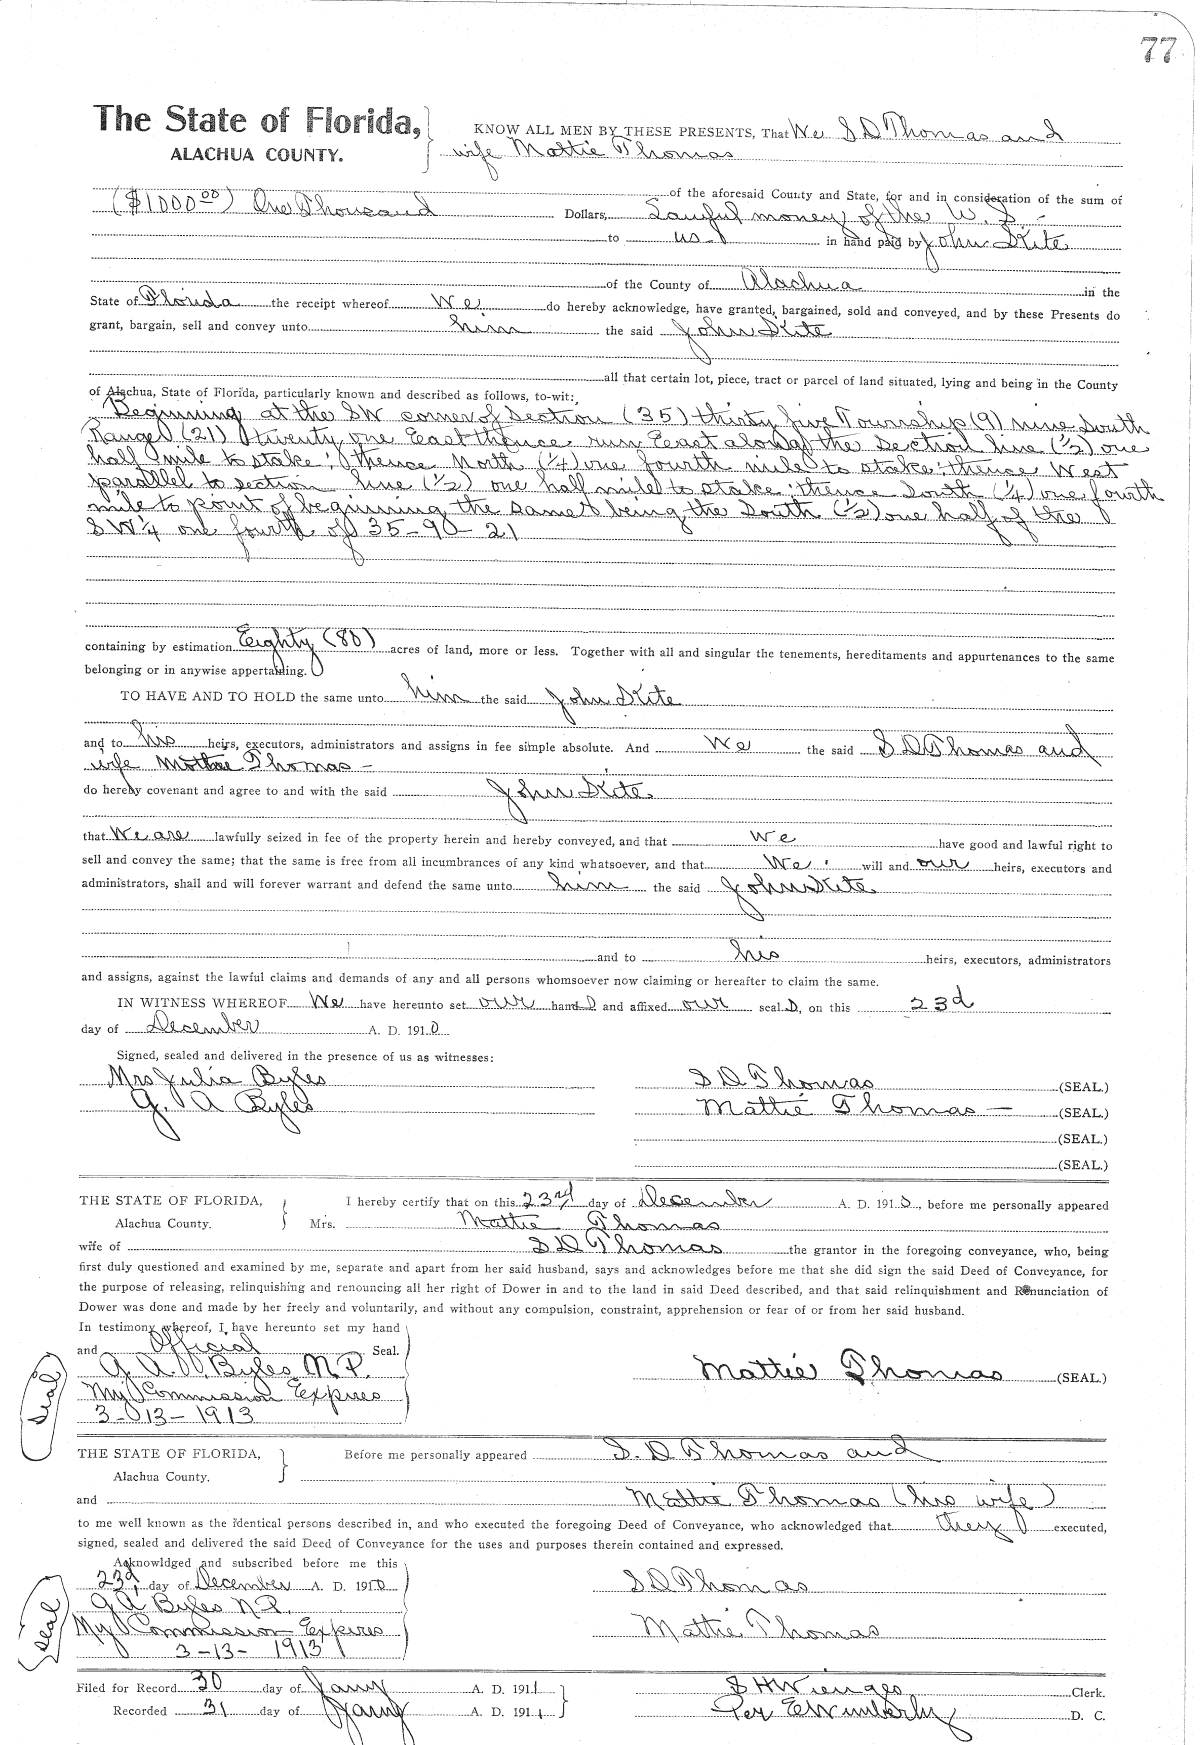 77
The State of Florida, KNOW ALL MEN BY THESE PRESENTS, That We S D Thomas and
ALACHUA COUNTY. wife Mattie Thomas
of the aforesaid County and State, for and in consideration of the sum of
($1000 00) One Thousand Dollars, Lawful money of the U. S -
to us in hand paid by John Kite
of the County of Alachua in the
State of Florida the receipt whereof We do hereby acknowledge, have granted, bargained, sold and conveyed, and by these Presents do
grant, bargain, sell and convey unto him the said John Kite
all that certain lot, piece, tract or parcel of land situated, lying and being in the County
of Alachua, State of Florida, particularly known and described as follows, to-wit:
Beginning at the SW corner of Section (35) thirty five Township (9) nine South
Range (21) twenty one East thence run East along the section line (1/2) one
half mile to stake; thence North (1/4) one fourth mile to stake; thence West
parallel to section line (1/2) one half mile to stake; thence South (1/4) one fourth
mile to point of beginning the same being the South (1/2) one half of the
S W 1/4 one fourth of 35-90-21
containing by estimation Eighty (80) acres of land, more or less. Together with all and singular the tenements, hereditaments and appurtenances to the same
belonging or in anywise appertaining.
TO HAVE AND TO HOLD the same unto him the said John Kite
and to his heirs, executors, administrators and assigns in fee simple absolute. And We the said S D Thomas and
wife Mattie Thomas -
do hereby covenant and agree to and with the said John Kite
that We are lawfully seized in fee of the property herein and hereby conveyed, and that We have good and lawful right to
sell and convey the same; that the same is free from all incumbrances of any kind whatsoever, and that We will and our heirs, executors and
administrators, shall and will forever warrant and defend the same unto him the said John Kite
and to his heirs, executors, administrators
and assigns, against the lawful claims and demands of any and all persons whomsoever now claiming or hereafter to claim the same.
IN WITNESS WHEREOF We have hereunto set our hand s and affixed our seal s, on this 23d
day of December A. D. 1910
Signed, sealed and delivered in the presence of us as witnesses:
Mrs Julia Byles S D Thomas (SEAL.)
G. A Byles Mattie Thomas - (SEAL.)
(SEAL.)
(SEAL.)
THE STATE OF FLORIDA, I hereby certify that on this 23rd day of December A. D. 1910, before me personally appeared
Alachua County. Mrs. Mattie Thomas
wife of S D Thomas the grantor in the foregoing conveyance, who, being
first duly questioned and examined by me, separate and apart from her said husband, says and acknowledges before me that she did sign the said Deed of Conveyance, for
the purpose of releasing, relinquishing and renouncing all her right of Dower in and to the land in said Deed described, and that said relinquishment and Renunciation of
Dower was done and made by her freely and voluntarily, and without any compulsion, constraint, apprehension or fear of or from her said husband.
In testimony whereof, I have hereunto set my hand
and Official Seal.
G. A. Byles N.P. Mattie Thomas (SEAL.)
My Commission Expires
3-13-1913
Seal
THE STATE OF FLORIDA, Before me personally appeared S. D Thomas and
Alachua County.
and Mattie Thomas (his wife)
to me well known as the identical persons described in, and who executed the foregoing Deed of Conveyance, who acknowledged that they executed,
signed, sealed and delivered the said Deed of Conveyance for the uses and purposes therein contained and expressed.
Acknowldged and subscribed before me this
23d, day of December A. D. 1910 S D Thomas
G A Byles N.P.
My Commission Expires Mattie Thomas
3-13-1913
Seal
Filed for Record 30 day of Jany A. D. 1911 S H Wienges Clerk.
Recorded 31 day of Jany A. D. 1911 Per E Wimberly D. C.